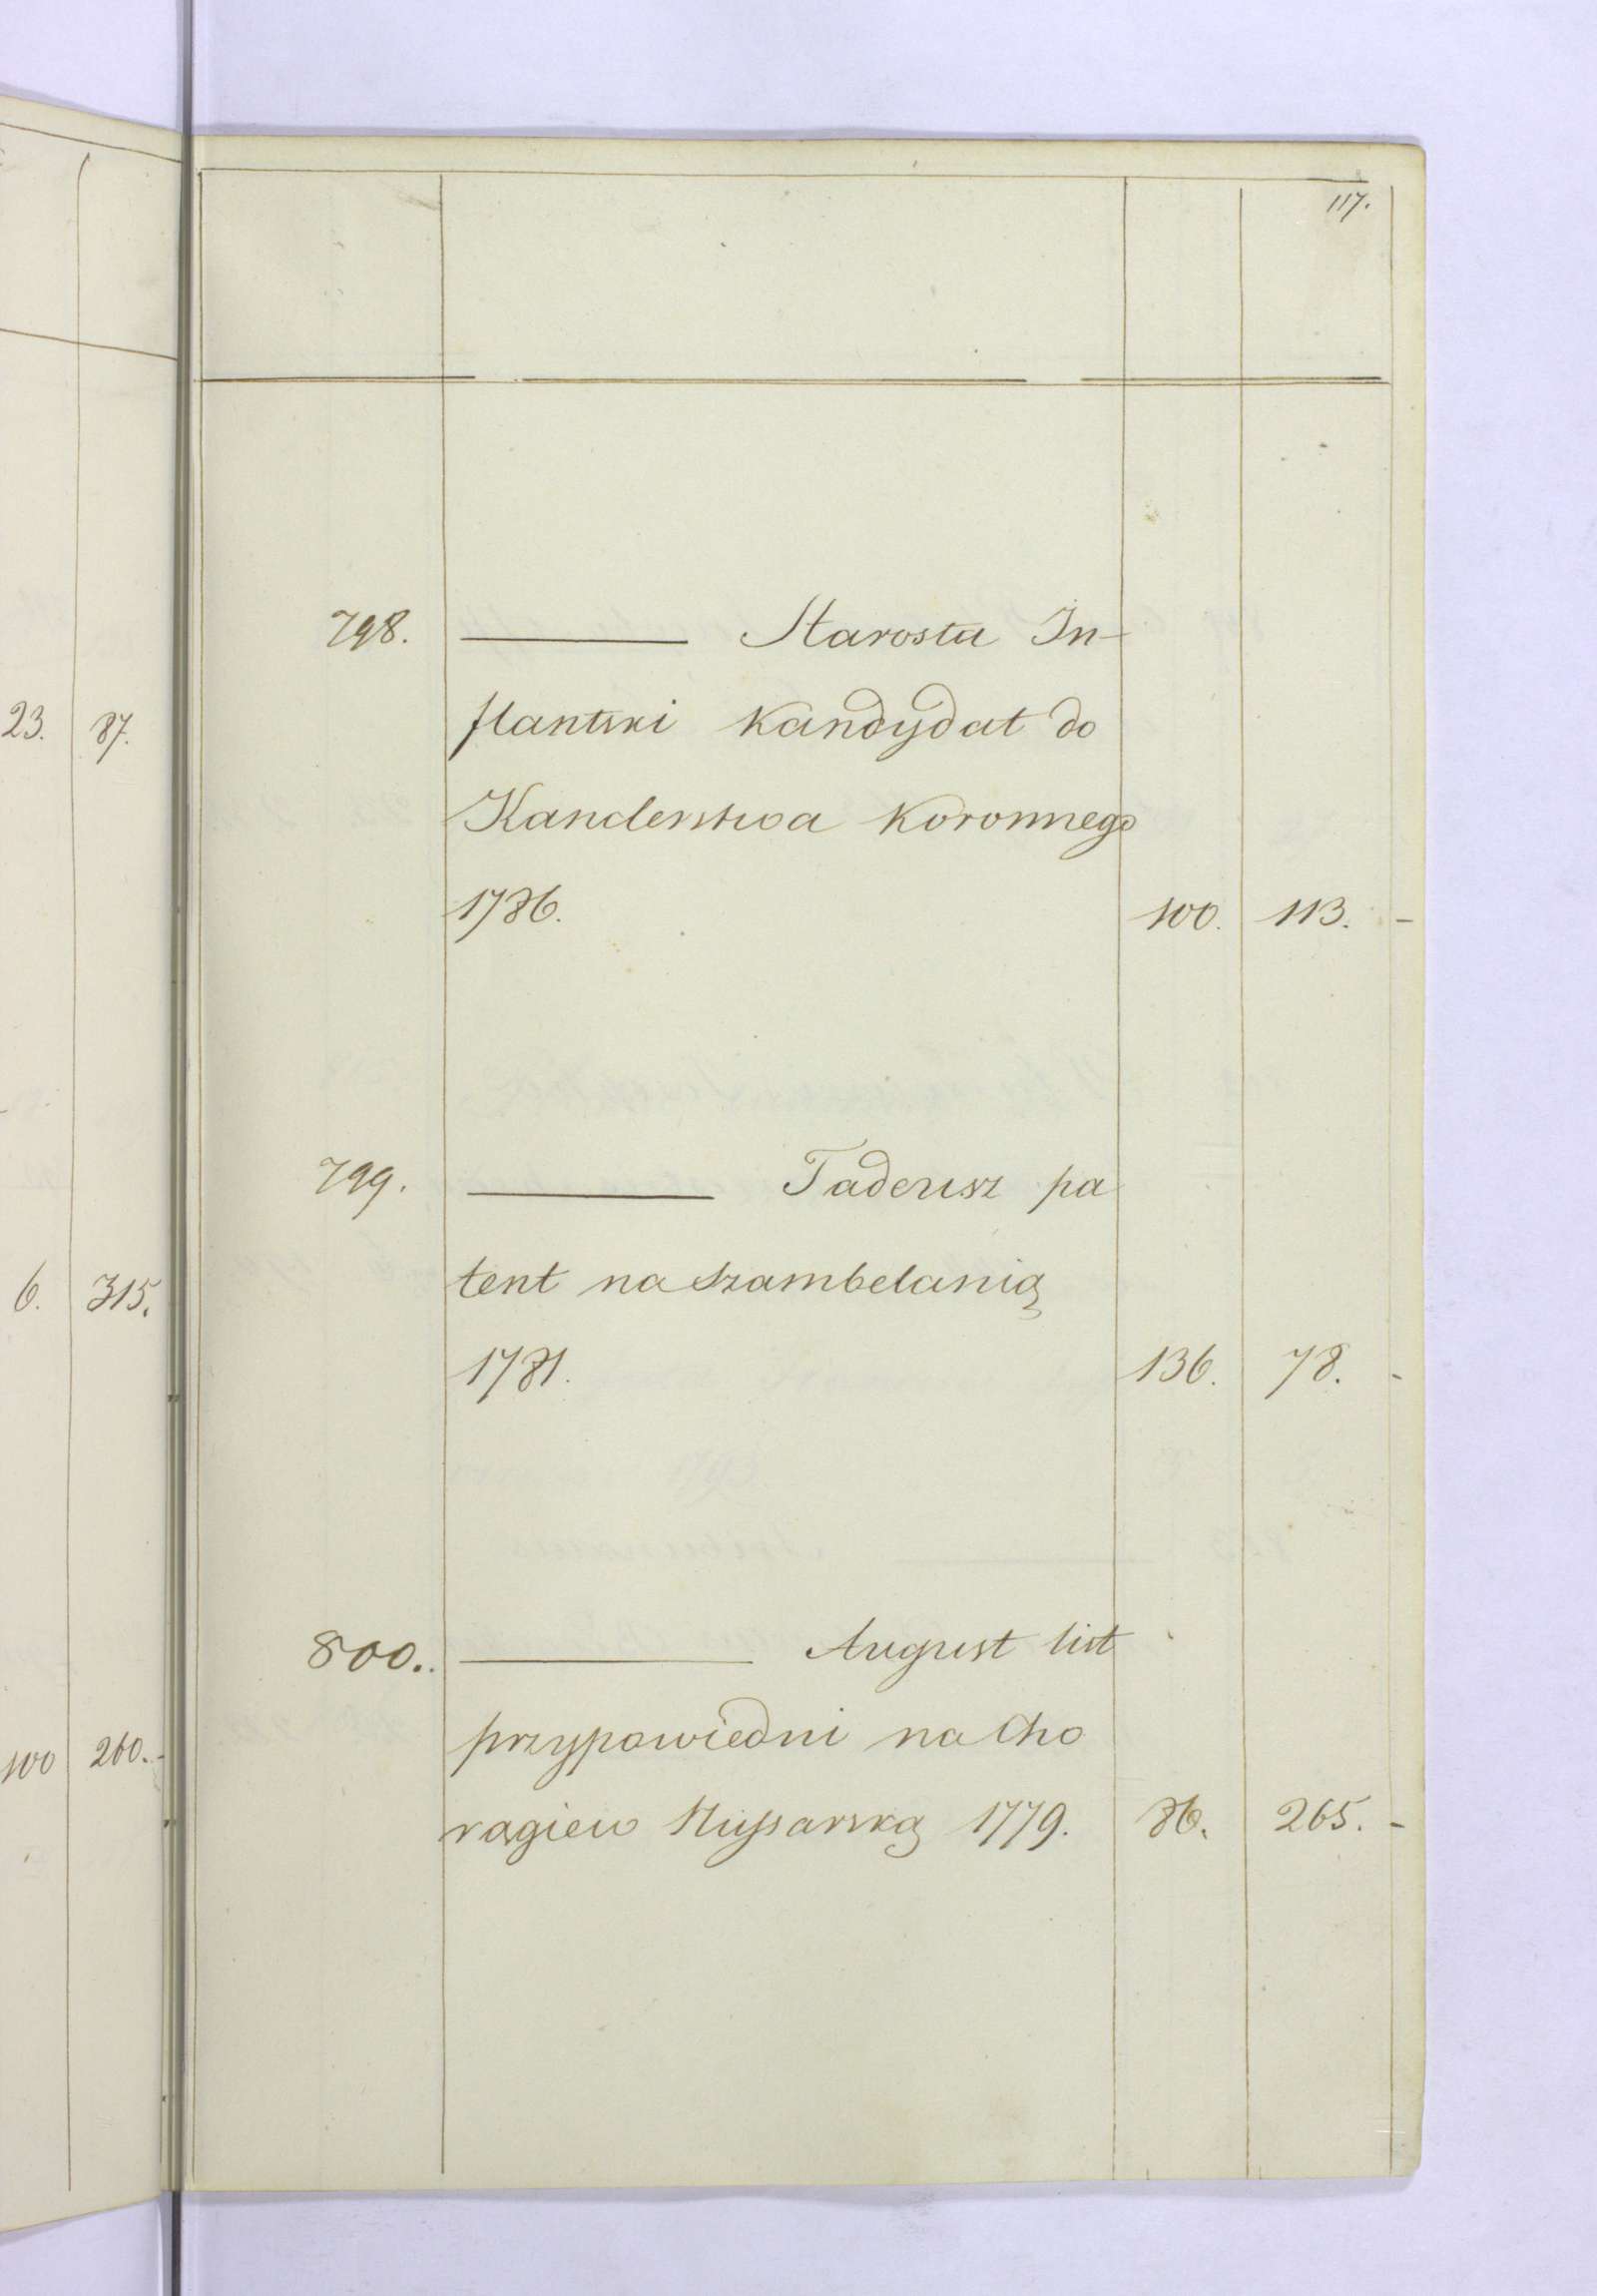 117.
798. ——— Starosta In-
flantski Kandydat do
Kanclerstwa Koronnego
1786. 100. 113. -
23. 87.
799. ——— Tadeusz pa
tent na Szambelanią
1781. 136. 78. -
6. 315.
800. ——— August list
przypowiedni na Cho
rągiew Hussarską 1779. 86. 265. -
100 260. -